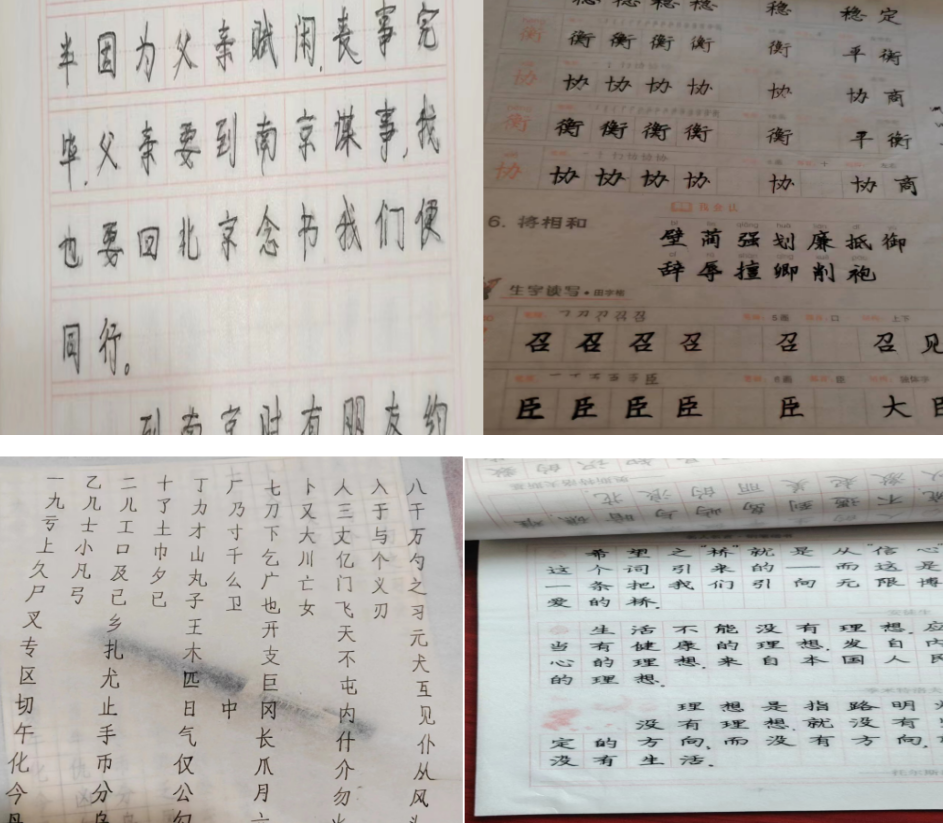 半因为父亲赋闲,丧事完
毕,父亲要到南京谋事,我
也要回北京念书我们便
同行。
到南京时有朋友约
稳 稳 稳 稳 稳 稳定
衡 衡 衡 衡 衡 衡 平衡
协 协 协 协 协 协 协商
衡 衡 衡 衡 衡 衡 平衡
协 协 协 协 协 协 协商
6. 将相和
璧 蔺 强 划 廉 抵 御
辞 辱 擅 卿 削 袍
生字读写·田字格
召 召 召 召 召 召见
臣 臣 臣 臣 臣 大臣
一九亏上久尸叉专区切午化今丹
乙几士小凡弓
二儿工口及已乡扎尤止手币分乌
十了土巾夕已
丁力才山丸子王木匹日气仅公勾
厂乃寸千么卫中
七刀下乞广也开支巨冈长爪月
卜又大川亡女
人三丈亿门飞天不屯内什介勿
入于与个义刃
八干万勺之习元犬互见仆从风
希望之"桥"就是从"信心"
这个词引来的——而这是
一条把我们引向无限博
爱的桥.
生活不能没有理想.应
当有健康的理想.发自内
心的理想.来自本国人民
的理想.
理想是指路明
没有理想.就没有
定的方向,而没有方向,
没有生活.